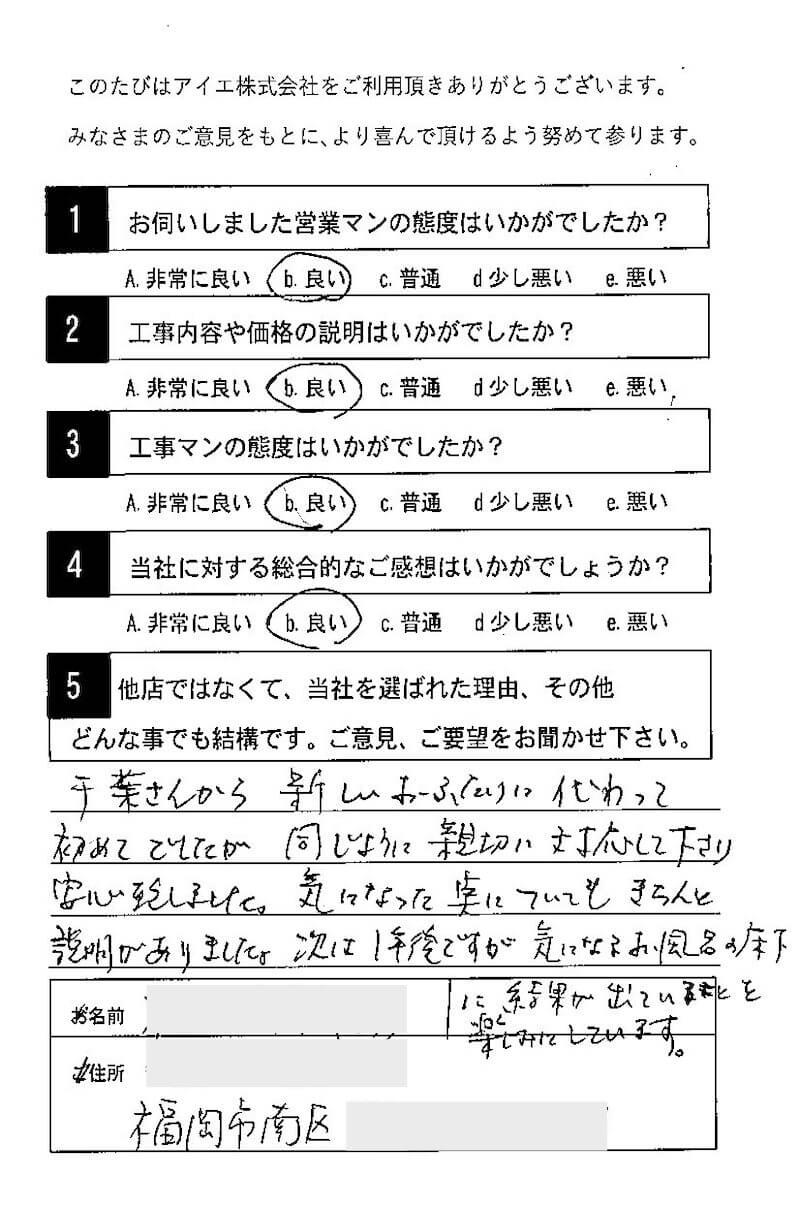 このたびはアイエ株式会社をご利用頂きありがとうございます。
みなさまのご意見をもとに、より喜んで頂けるよう努めて参ります。
1 お伺いしました営業マンの態度はいかがでしたか？
A. 非常に良い b. 良い c. 普通 d 少し悪い e. 悪い
2 工事内容や価格の説明はいかがでしたか？
A. 非常に良い b. 良い c. 普通 d 少し悪い e. 悪い
3 工事マンの態度はいかがでしたか？
A. 非常に良い b. 良い c. 普通 d 少し悪い e. 悪い
4 当社に対する総合的なご感想はいかがでしょうか？
A. 非常に良い b. 良い c. 普通 d 少し悪い e. 悪い
5 他店ではなくて、当社を選ばれた理由、その他
どんな事でも結構です。ご意見、ご要望をお聞かせ下さい。
千葉さんから 新しいお二ふたりに 代わって
初めてでしたが 同じように 親切に 対応して下さり
安心致しました。気になった 事についても きちんと
説明がありました。次は 1年後ですが 気になるお風呂の床下
に 結果が 出ていることを
楽しみにしています。
お名前
ご住所
福岡市南区